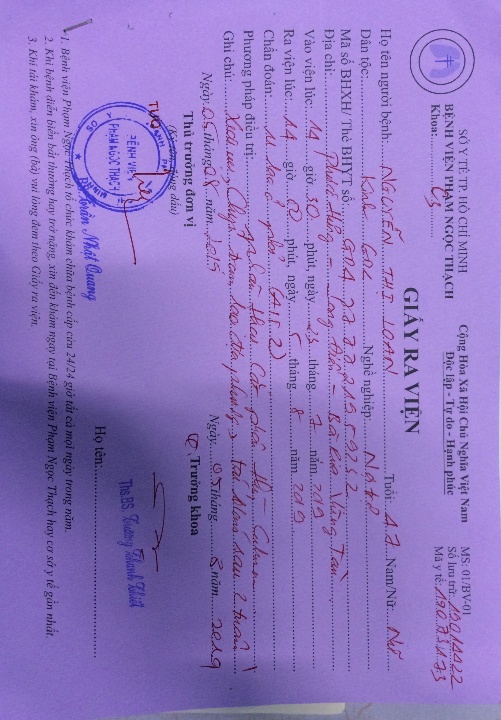 SỞ Y TẾ TP. HỒ CHÍ MINH
BỆNH VIỆN PHẠM NGỌC THẠCH
Khoa: C3
Cộng Hòa Xã Hội Chủ Nghĩa Việt Nam
Độc lập - Tự do - Hạnh phúc
MS: 01/BV-01
Số lưu trữ: 19014422
Mã y tế: 19073173
GIẤY RA VIỆN
Họ tên người bệnh: NGUYỄN THỊ LOAN Tuổi: 47 Nam/Nữ: Nữ
Dân tộc: Kinh Nghề nghiệp:
Mã số BHXH/ Thẻ BHYT số: GD4 77 772 1959232
Địa chỉ: Phước Hưng - Long Điền - Bà Rịa Vũng Tàu
Vào viện lúc: 14 giờ 30 phút, ngày 23 tháng 7 năm 2019
Ra viện lúc: 14 giờ 00 phút, ngày 5 tháng 8 năm 2019
Chẩn đoán: U lao ở phổi (A15.2)
Phương pháp điều trị: phẫu thuật cắt phân thùy
Ghi chú: Xuất viện, Chuyển trạm lao địa phương, tái khám sau 2 tuần
Ngày 05 tháng 08 năm 2019
Ngày 05 tháng 8 năm 2019
Thủ trưởng đơn vị
(Ký tên, đóng dấu)
Trưởng khoa
BỆNH VIỆN
PHẠM NGỌC THẠCH
Trần Nhật Quang
Ths.BS. Trương Thanh Thiết
Họ tên:
1. Bệnh viện Phạm Ngọc Thạch tổ chức khám chữa bệnh cấp cứu 24/24 giờ tất cả mọi ngày trong năm.
2. Khi bệnh diễn biến bất thường hay trở nặng, xin đến khám ngay tại Bệnh viện Phạm Ngọc Thạch hay cơ sở y tế gần nhất.
3. Khi tái khám, xin ông (bà) vui lòng đem theo Giấy ra viện.